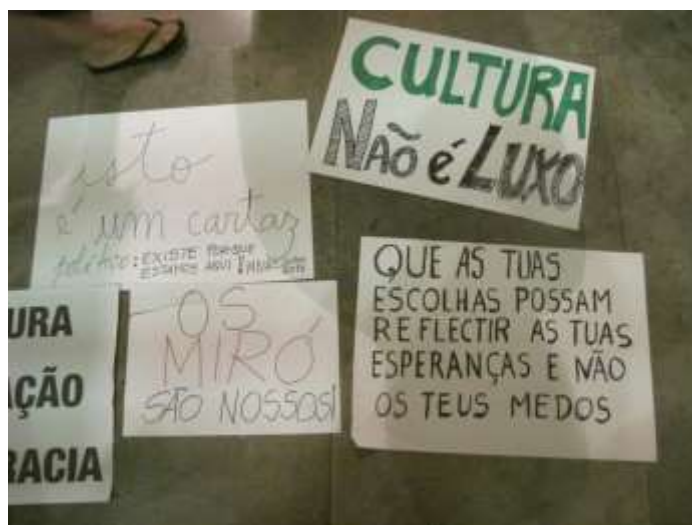 CULTURA
NÃO É LUXO
isto
é um cartaz
político: EXISTE PORQUE
ESTAMOS AQUI!
OS
MIRÓ
SÃO NOSSOS!
QUE AS TUAS
ESCOLHAS POSSAM
REFLECTIR AS TUAS
ESPERANÇAS E NÃO
OS TEUS MEDOS
URA
AÇÃO
RACIA